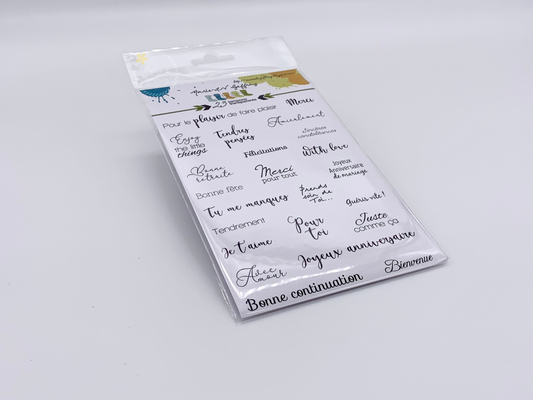 23
Pour le plaisir de faire plaisir
Merci
Enjoy
the little
things
Tendres
pensées
Amicalement
Sincères
condoléances
Bonne
retraite
Félicitations
with love
Bonne fête
Merci
pour tout
Joyeux
Anniversaire
de mariage
Tu me manques
Prends
soin de
Toi...
Guéris vite !
Tendrement
Pour
toi
Juste
comme ça
Je t'aime
Joyeux anniversaire
Avec
Amour
Bienvenue
Bonne continuation